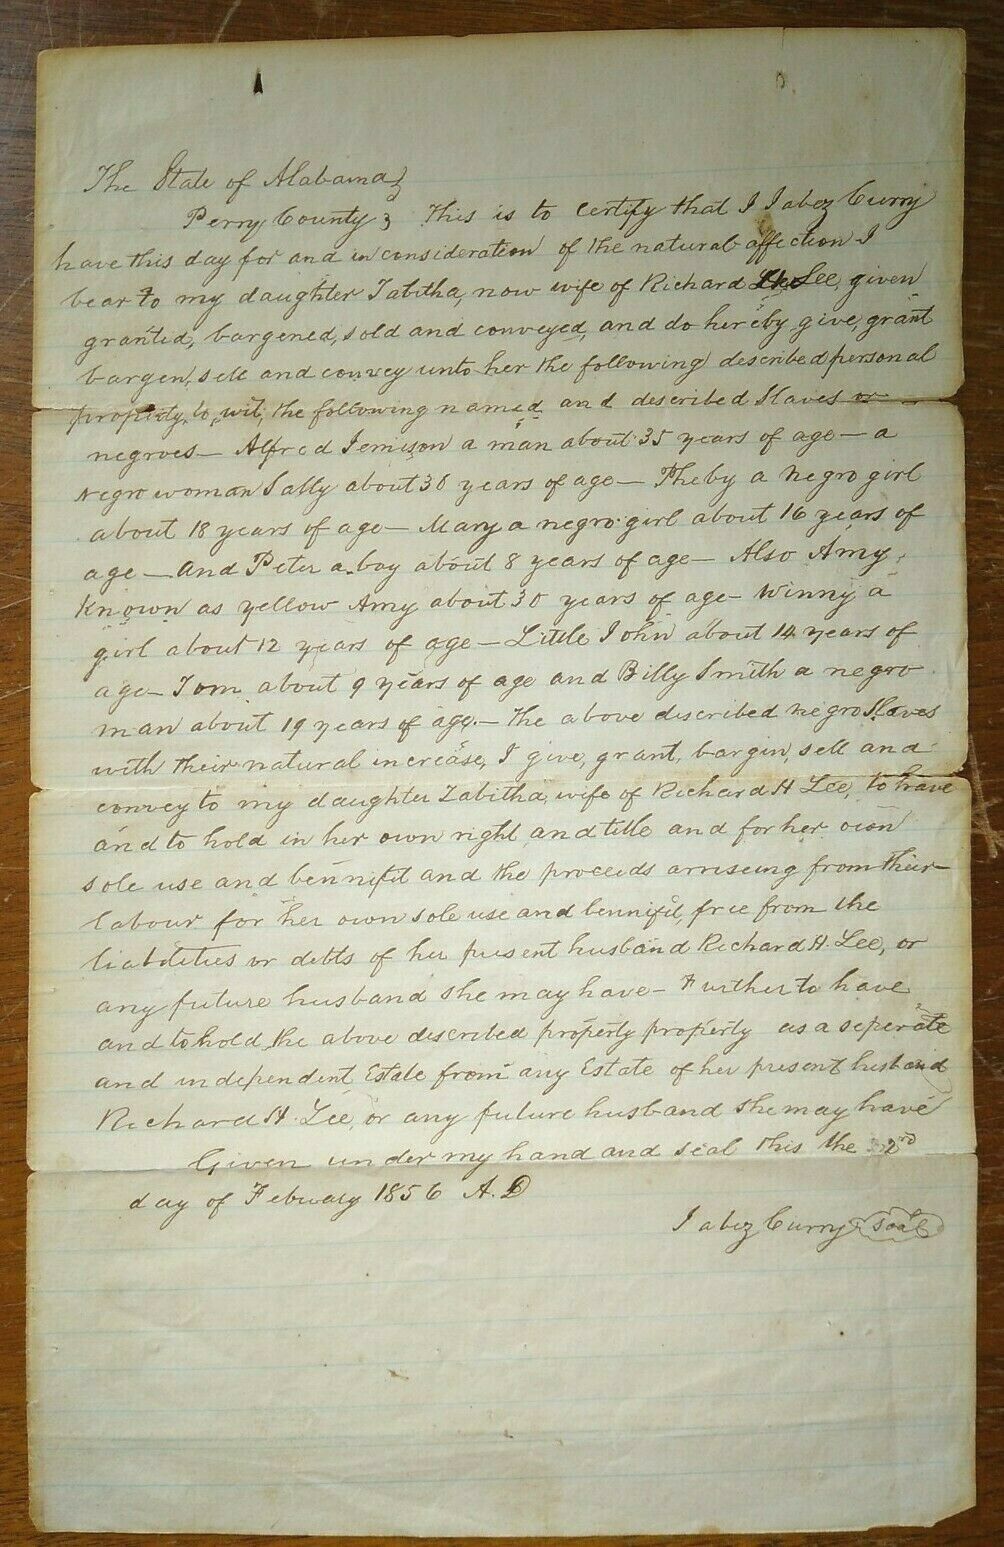 The State of Alabama }
Perry County } This is to certify that I Jabez Curry
have this day for and in consideration of the natural affection I
bear to my daughter Tabitha, now wife of Richard Lee, given
granted, bargened, sold and conveyed, and do hereby give, grant
bargen, sell and convey unto her the following described personal
property, to, wit; the following named and described Slaves or
negroes — Alfred Jemison a man about 35 years of age — a
negro woman Sally about 30 years of age — Pheby a negro girl
about 18 years of age — Mary a negro girl about 16 years of
age — and Peter a boy about 8 years of age — Also Amy,
Known as yellow Amy about 30 years of age — Winny a
girl about 12 years of age — Little John about 14 years of
age — Tom about 9 years of age and Billy Smith a negro
man about 19 years of age. — the above discribed negro Slaves
with their natural increase, I give, grant, bargin, sell and
convey to my daughter Tabitha, wife of Richard H Lee, to have
and to hold in her own right and title and for her own
sole use and bennifit and the proceeds arriseing from their
labour for her own sole use and bennifit, free from the
liabilities or debts of her present husband Richard H. Lee, or
any future husband she may have — Further to have
and to hold the above discribed property property as a seperate
and independent Estate from any Estate of her present husband
Richard H. Lee, or any future husband she may have
Given under my hand and seal this the 2nd
day of February 1856 A.D
Jabez Curry seal